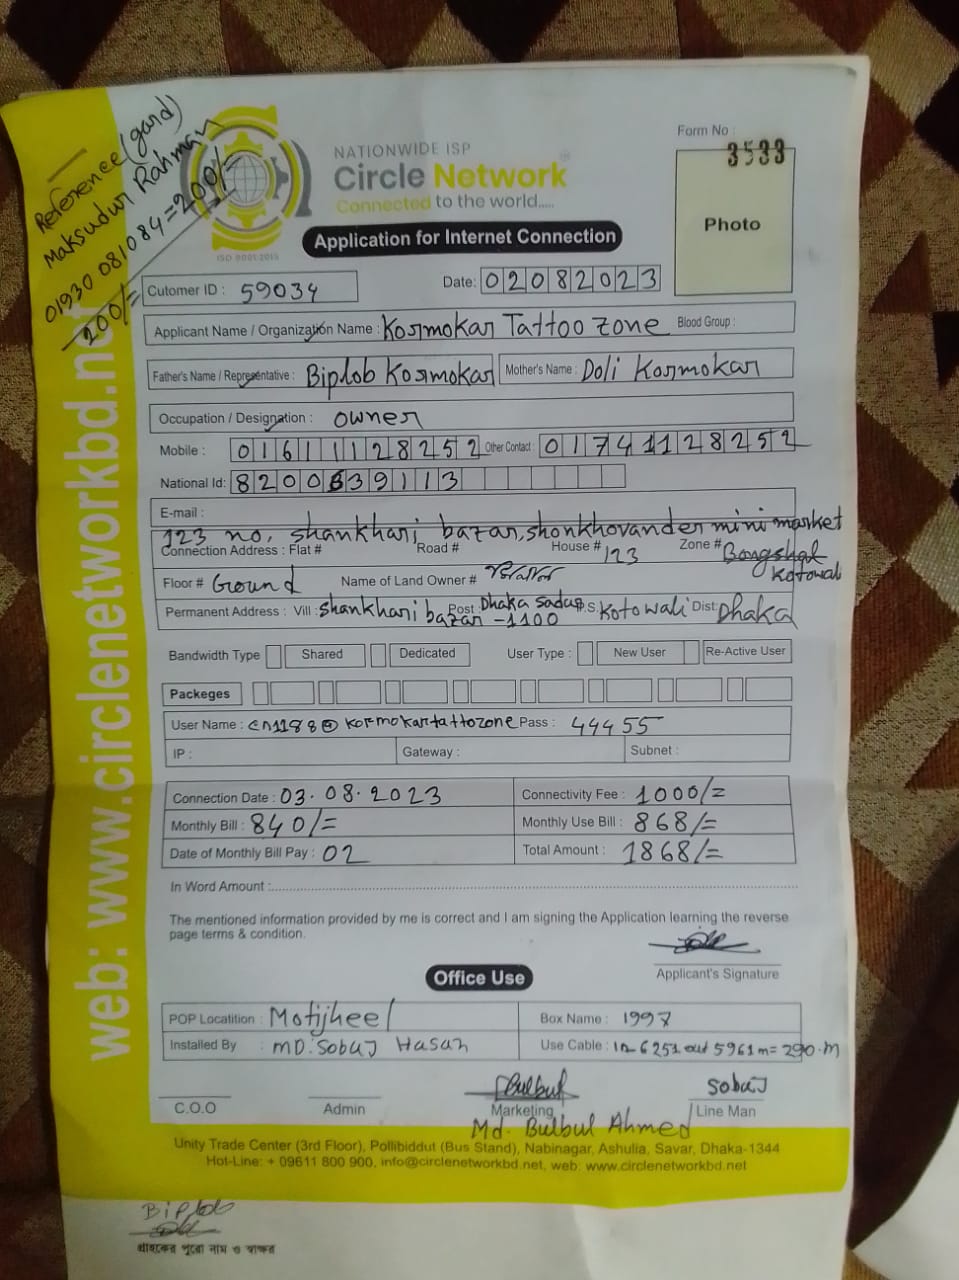 Reference (gard)
Maksudur Rahman
01930 081084=200/-
200/=
NATIONWIDE ISP
Circle Network
Connected to the world.....
ISO 9001:2015
Form No :
3533
Photo
Application for Internet Connection
Cutomer ID : 59034 Date: 02082023
Applicant Name / Organization Name : Kormokar Tattoo Zone Blood Group :
Father's Name / Representative : Biplob Kormokar Mother's Name : Doli Kormokar
Occupation / Designation : owner
Mobile : 01611128252 Other Contact : 01741128252
National Id: 8200639113
E-mail :
123 no, shankhari bazar, shonkhovander mini market
Connection Address : Flat # Road # House # 123 Zone # Bongshal
Kotowali
Floor # Ground Name of Land Owner #
Permanent Address : Vill : shankhari bazar Post Dhaka Sadar -1100 P.S. Kotowali Dist: Dhaka
Bandwidth Type Shared Dedicated User Type : New User Re-Active User
Packeges
User Name : cn1188@kormokartattozone Pass : 44455
IP : Gateway : Subnet :
Connection Date : 03.08.2023 Connectivity Fee : 1000/=
Monthly Bill : 840/= Monthly Use Bill : 868/=
Date of Monthly Bill Pay : 02 Total Amount : 1868/=
In Word Amount :
The mentioned information provided by me is correct and I am signing the Application learning the reverse
page terms & condition.
Applicant's Signature
Office Use
POP Locatition : Motijheel Box Name : 1997
Installed By : MD. Sobuj Hasan Use Cable : in 6251 out 5961 m= 290.m
Bulbul Sobuj
C.O.O Admin Marketing Line Man
Md. Bulbul Ahmed
Unity Trade Center (3rd Floor), Pollibiddut (Bus Stand), Nabinagar, Ashulia, Savar, Dhaka-1344
Hot-Line: + 09611 800 900, info@circlenetworkbd.net, web: www.circlenetworkbd.net
web: www.circlenetworkbd.net
Biplob
গ্রাহকের পুরো নাম ও স্বাক্ষর